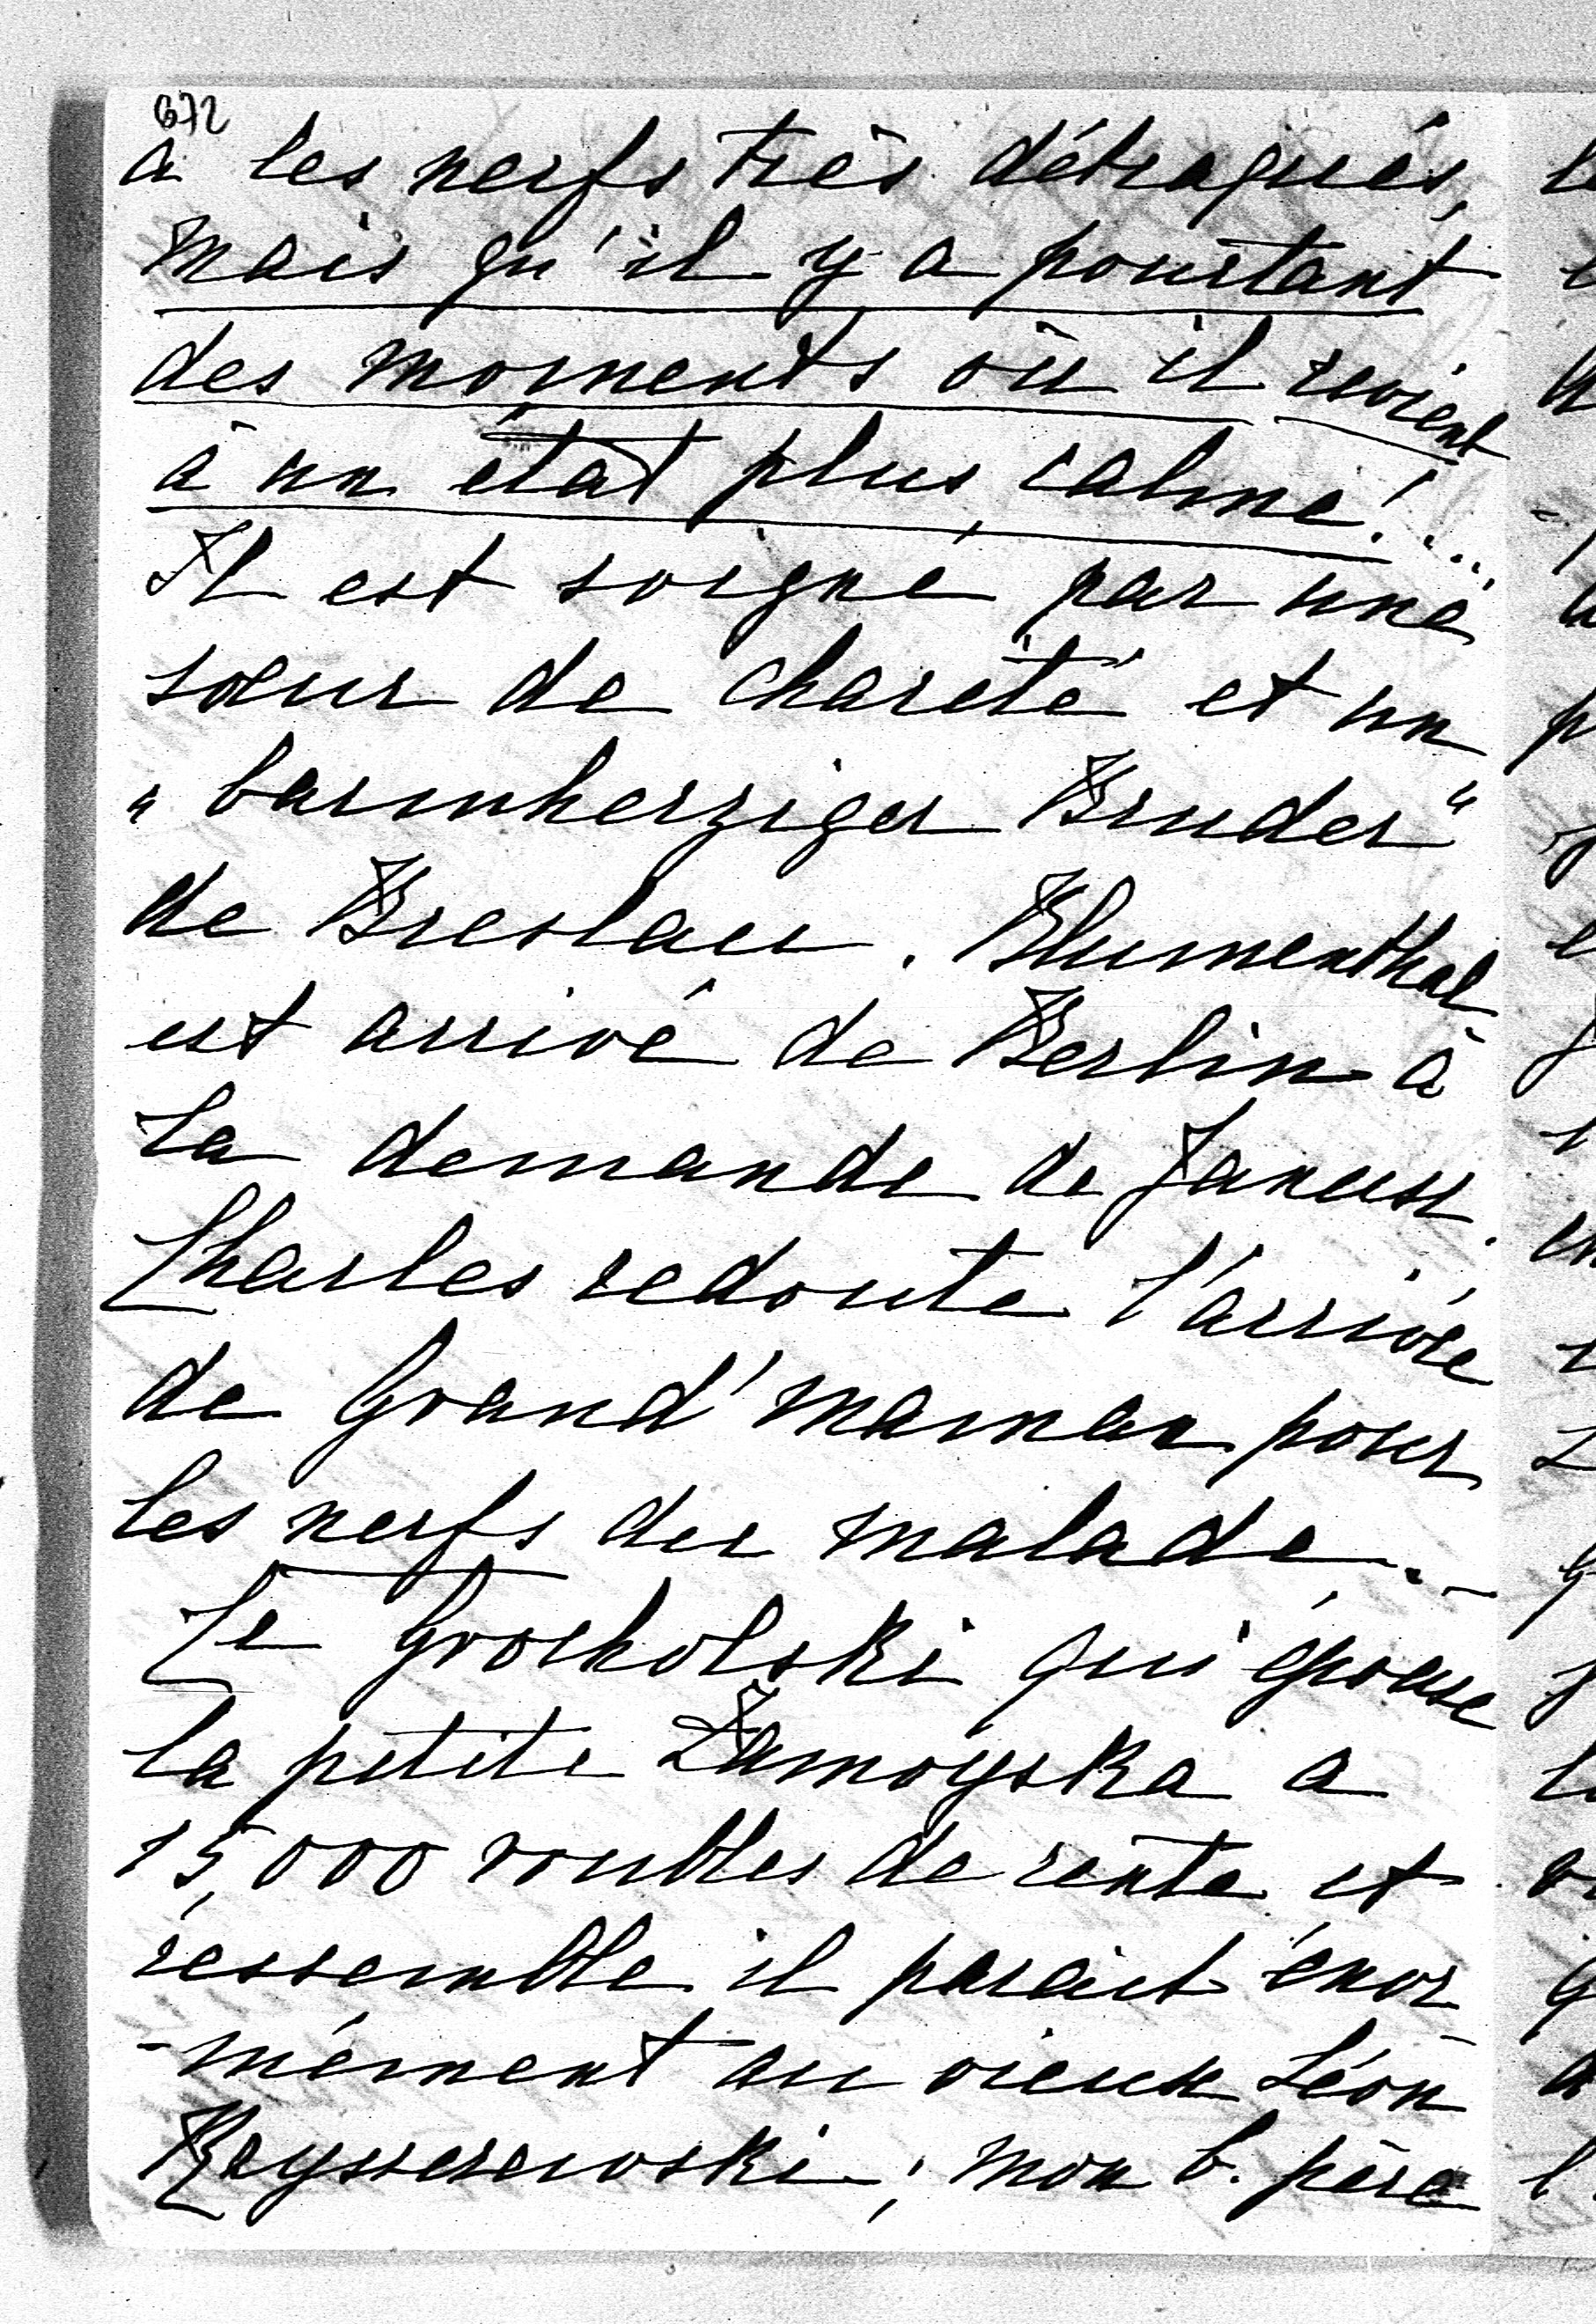 672
a les nerfs très détraqués,
mais qu'il y a pourtant
des moments où il revient
à un état plus calme!...
Il est soigné par une
sœur de charité et un
"barmherziger Bruder"
de Breslau. Blumenthal
est arrivé de Berlin à
la demande de Janusz.
Charles redoute l'arrivée
de Grand'maman pour
les nerfs du malade. –
Le Grocholski qui épouse
la petite Zamoyska a
15,000 roubles de rente et
ressemble il parait énor
-mément au vieux Léon
; mon b. père